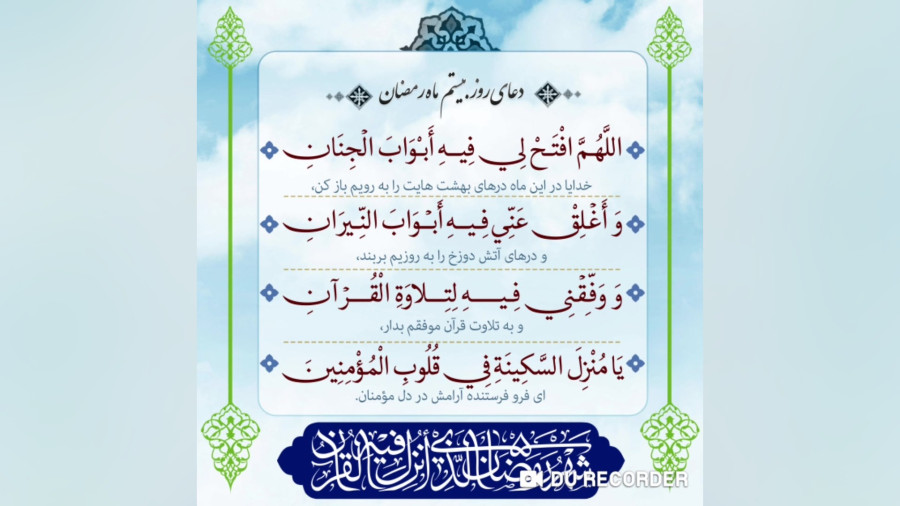 دعای روز بیستم ماه رمضان
اللَّهُمَّ افْتَحْ لِي فِيهِ أَبْوَابَ الْجِنَانِ
خدایا در این ماه درهای بهشت هایت را به رویم باز کن،
وَ أَغْلِقْ عَنِّي فِيهِ أَبْوَابَ النِّيرَانِ
و درهای آتش دوزخ را به روزیم بربند،
وَ وَفِّقْنِي فِيهِ لِتِلاوَةِ الْقُرْآنِ
و به تلاوت قرآن موفقم بدار،
يَا مُنْزِلَ السَّكِينَةِ فِي قُلُوبِ الْمُؤْمِنِينَ
ای فرو فرستنده آرامش در دل مؤمنان.
شَهْرُ رَمَضَانَ الَّذِي أُنْزِلَ فِيهِ الْقُرْآنُ
DU RECORDER